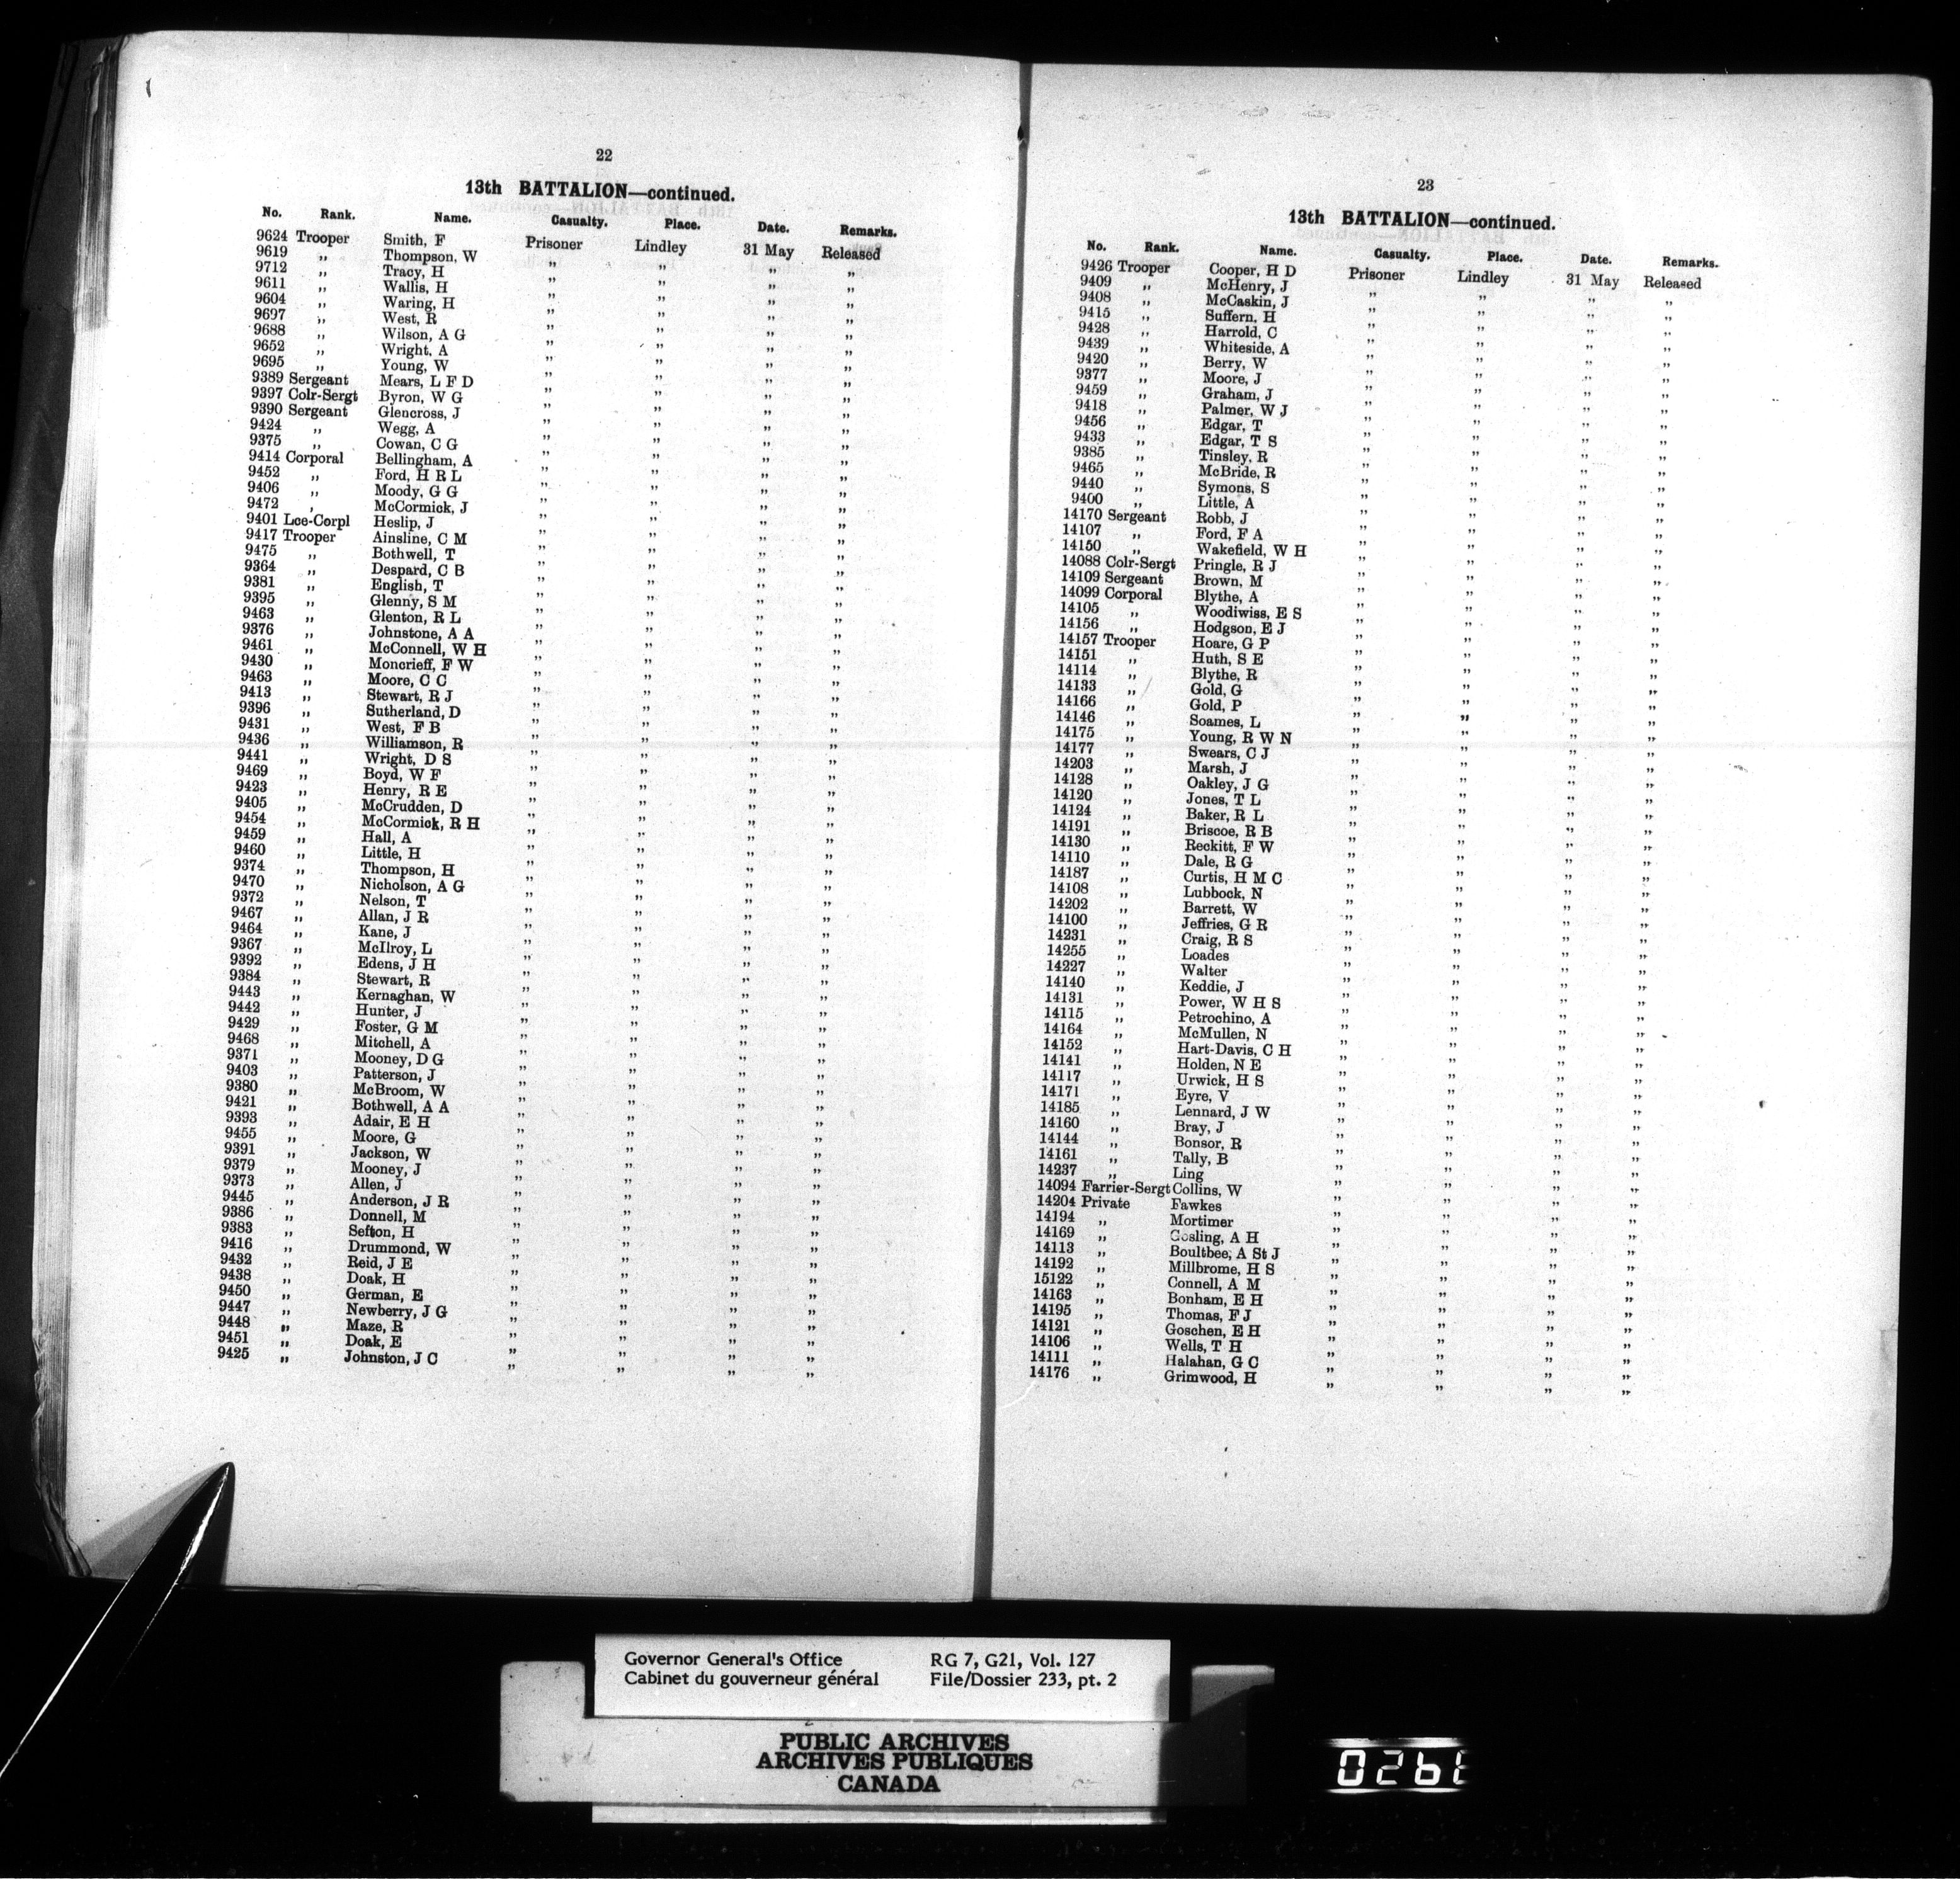 22
13th BATTALION—continued.
No. Rank. Name. Casualty. Place. Date. Remarks.
9624 Trooper Smith, F Prisoner Lindley 31 May Released
9619 „ Thompson, W „ „ „ „
9712 „ Tracy, H „ „ „ „
9611 „ Wallis, H „ „ „ „
9604 „ Waring, H „ „ „ „
9697 „ West, R „ „ „ „
9688 „ Wilson, A G „ „ „ „
9652 „ Wright, A „ „ „ „
9695 „ Young, W „ „ „ „
9389 Sergeant Mears, L F D „ „ „ „
9397 Colr-Sergt Byron, W G „ „ „ „
9390 Sergeant Glencross, J „ „ „ „
9424 „ Wegg, A „ „ „ „
9375 „ Cowan, C G „ „ „ „
9414 Corporal Bellingham, A „ „ „ „
9452 „ Ford, H R L „ „ „ „
9406 „ Moody, G G „ „ „ „
9472 „ McCormick, J „ „ „ „
9401 Lce-Corpl Heslip, J „ „ „ „
9417 Trooper Ainsline, C M „ „ „ „
9475 „ Bothwell, T „ „ „ „
9364 „ Despard, C B „ „ „ „
9381 „ English, T „ „ „ „
9395 „ Glenny, S M „ „ „ „
9463 „ Glenton, R L „ „ „ „
9376 „ Johnstone, A A „ „ „ „
9461 „ McConnell, W H „ „ „ „
9430 „ Moncrieff, F W „ „ „ „
9463 „ Moore, C C „ „ „ „
9413 „ Stewart, R J „ „ „ „
9396 „ Sutherland, D „ „ „ „
9431 „ West, F B „ „ „ „
9436 „ Williamson, R „ „ „ „
9441 „ Wright, D S „ „ „ „
9469 „ Boyd, W F „ „ „ „
9423 „ Henry, R E „ „ „ „
9405 „ McCrudden, D „ „ „ „
9454 „ McCormick, R H „ „ „ „
9459 „ Hall, A „ „ „ „
9460 „ Little, H „ „ „ „
9374 „ Thompson, H „ „ „ „
9470 „ Nicholson, A G „ „ „ „
9372 „ Nelson, T „ „ „ „
9467 „ Allan, J R „ „ „ „
9464 „ Kane, J „ „ „ „
9367 „ McIlroy, L „ „ „ „
9392 „ Edens, J H „ „ „ „
9384 „ Stewart, R „ „ „ „
9443 „ Kernaghan, W „ „ „ „
9442 „ Hunter, J „ „ „ „
9429 „ Foster, G M „ „ „ „
9468 „ Mitchell, A „ „ „ „
9371 „ Mooney, D G „ „ „ „
9403 „ Patterson, J „ „ „ „
9380 „ McBroom, W „ „ „ „
9421 „ Bothwell, A A „ „ „ „
9393 „ Adair, E H „ „ „ „
9455 „ Moore, G „ „ „ „
9391 „ Jackson, W „ „ „ „
9379 „ Mooney, J „ „ „ „
9373 „ Allen, J „ „ „ „
9445 „ Anderson, J R „ „ „ „
9386 „ Donnell, M „ „ „ „
9383 „ Sefton, H „ „ „ „
9416 „ Drummond, W „ „ „ „
9432 „ Reid, J E „ „ „ „
9438 „ Doak, H „ „ „ „
9450 „ German, E „ „ „ „
9447 „ Newberry, J G „ „ „ „
9448 „ Maze, R „ „ „ „
9451 „ Doak, E „ „ „ „
9425 „ Johnston, J C „ „ „ „
23
13th BATTALION—continued.
No. Rank. Name. Casualty. Place. Date. Remarks.
9426 Trooper Cooper, H D Prisoner Lindley 31 May Released
9409 „ McHenry, J „ „ „ „
9408 „ McCaskin, J „ „ „ „
9415 „ Suffern, H „ „ „ „
9428 „ Harrold, C „ „ „ „
9439 „ Whiteside, A „ „ „ „
9420 „ Berry, W „ „ „ „
9377 „ Moore, J „ „ „ „
9459 „ Graham, J „ „ „ „
9418 „ Palmer, W J „ „ „ „
9456 „ Edgar, T „ „ „ „
9433 „ Edgar, T S „ „ „ „
9385 „ Tinsley, R „ „ „ „
9465 „ McBride, R „ „ „ „
9440 „ Symons, S „ „ „ „
9400 „ Little, A „ „ „ „
14170 Sergeant Robb, J „ „ „ „
14107 „ Ford, F A „ „ „ „
14150 „ Wakefield, W H „ „ „ „
14088 Colr-Sergt Pringle, R J „ „ „ „
14109 Sergeant Brown, M „ „ „ „
14099 Corporal Blythe, A „ „ „ „
14105 „ Woodiwiss, E S „ „ „ „
14156 „ Hodgson, E J „ „ „ „
14157 Trooper Hoare, G P „ „ „ „
14151 „ Huth, S E „ „ „ „
14114 „ Blythe, R „ „ „ „
14133 „ Gold, G „ „ „ „
14166 „ Gold, P „ „ „ „
14146 „ Soames, L „ „ „ „
14175 „ Young, R W N „ „ „ „
14177 „ Swears, C J „ „ „ „
14203 „ Marsh, J „ „ „ „
14128 „ Oakley, J G „ „ „ „
14120 „ Jones, T L „ „ „ „
14124 „ Baker, R L „ „ „ „
14191 „ Briscoe, R B „ „ „ „
14130 „ Reckitt, F W „ „ „ „
14110 „ Dale, R G „ „ „ „
14187 „ Curtis, H M C „ „ „ „
14108 „ Lubbock, N „ „ „ „
14202 „ Barrett, W „ „ „ „
14100 „ Jeffries, G R „ „ „ „
14231 „ Craig, R S „ „ „ „
14255 „ Loades „ „ „ „
14227 „ Walter „ „ „ „
14140 „ Keddie, J „ „ „ „
14131 „ Power, W H S „ „ „ „
14115 „ Petrochino, A „ „ „ „
14164 „ McMullen, N „ „ „ „
14152 „ Hart-Davis, C H „ „ „ „
14141 „ Holden, N E „ „ „ „
14117 „ Urwick, H S „ „ „ „
14171 „ Eyre, V „ „ „ „
14185 „ Lennard, J W „ „ „ „
14160 „ Bray, J „ „ „ „
14144 „ Bonsor, R „ „ „ „
14161 „ Tally, B „ „ „ „
14237 „ Ling „ „ „ „
14094 Farrier-Sergt Collins, W „ „ „ „
14204 Private Fawkes „ „ „ „
14194 „ Mortimer „ „ „ „
14169 „ Gosling, A H „ „ „ „
14113 „ Boultbee, A St J „ „ „ „
14192 „ Millbrome, H S „ „ „ „
15122 „ Connell, A M „ „ „ „
14163 „ Bonham, E H „ „ „ „
14195 „ Thomas, F J „ „ „ „
14121 „ Goschen, E H „ „ „ „
14106 „ Wells, T H „ „ „ „
14111 „ Halahan, G C „ „ „ „
14176 „ Grimwood, H „ „ „ „
Governor General's Office RG 7, G21, Vol. 127
Cabinet du gouverneur général File/Dossier 233, pt. 2
PUBLIC ARCHIVES
ARCHIVES PUBLIQUES
CANADA